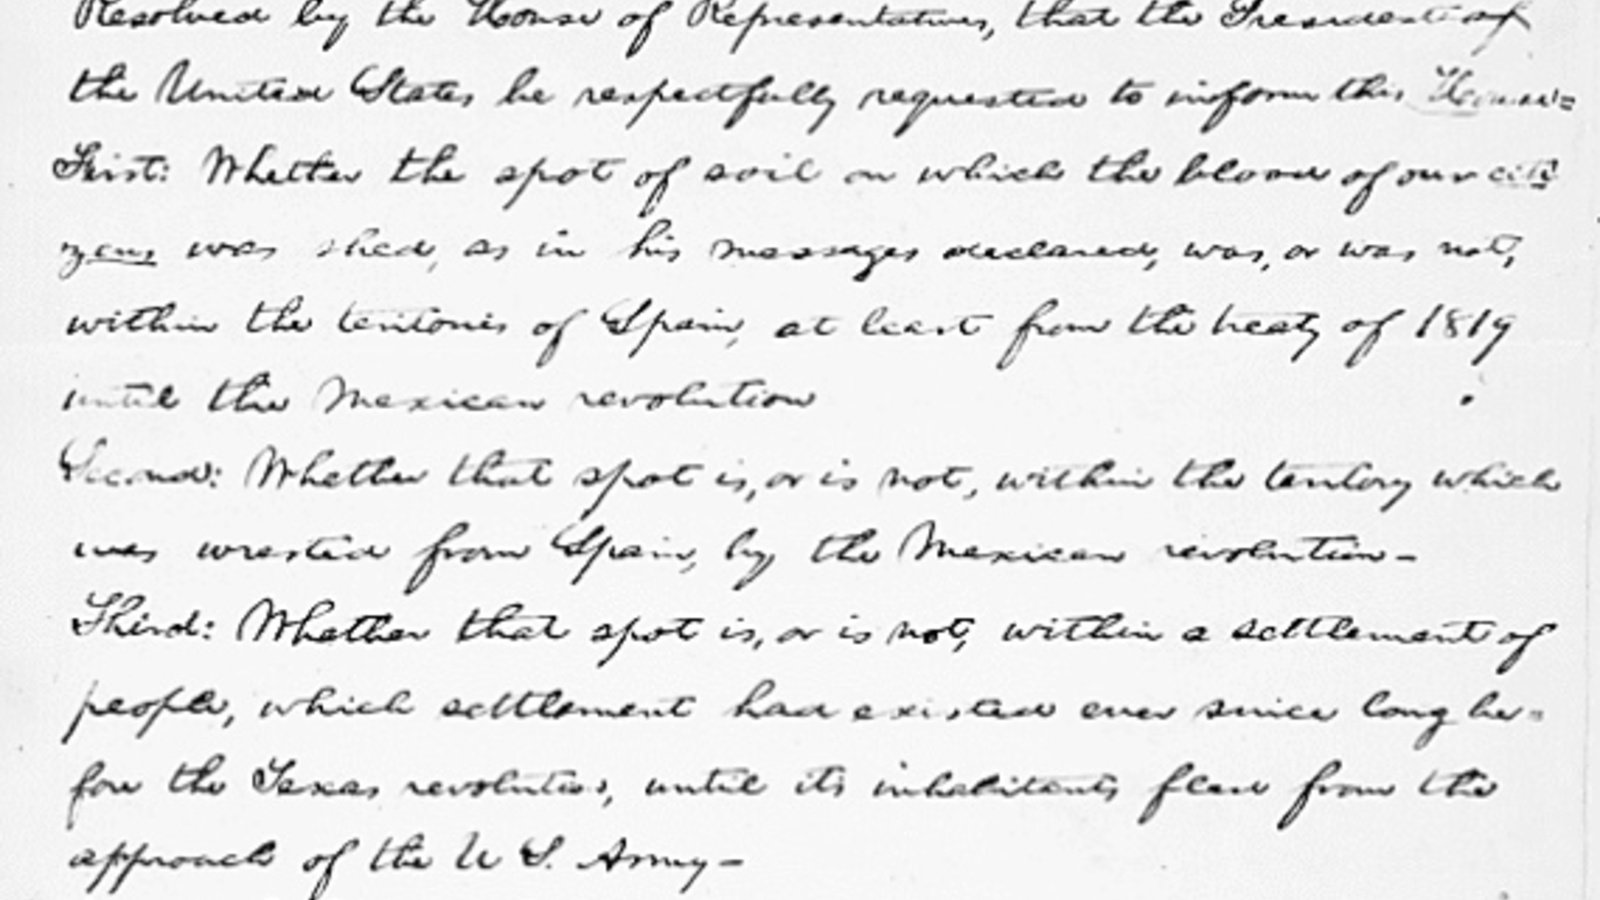 Resolved by the House of Representatives, that the President of
the United States be respectfully requested to inform this House=
First: Whether the spot of soil on which the blood of our citi
zens was shed, as in his messages declared, was, or was not,
within the teritories of Spain, at least from the treaty of 1819
until the Mexican revolution
Second: Whether that spot is, or is not, within the teritory which
was wrested from Spain, by the Mexican revolution—
Third: Whether that spot is, or is not, within a settlement of
people, which settlement had existed ever since long be=
fore the Texas revolution, until its inhabitants fled from the
approach of the U S. Army—